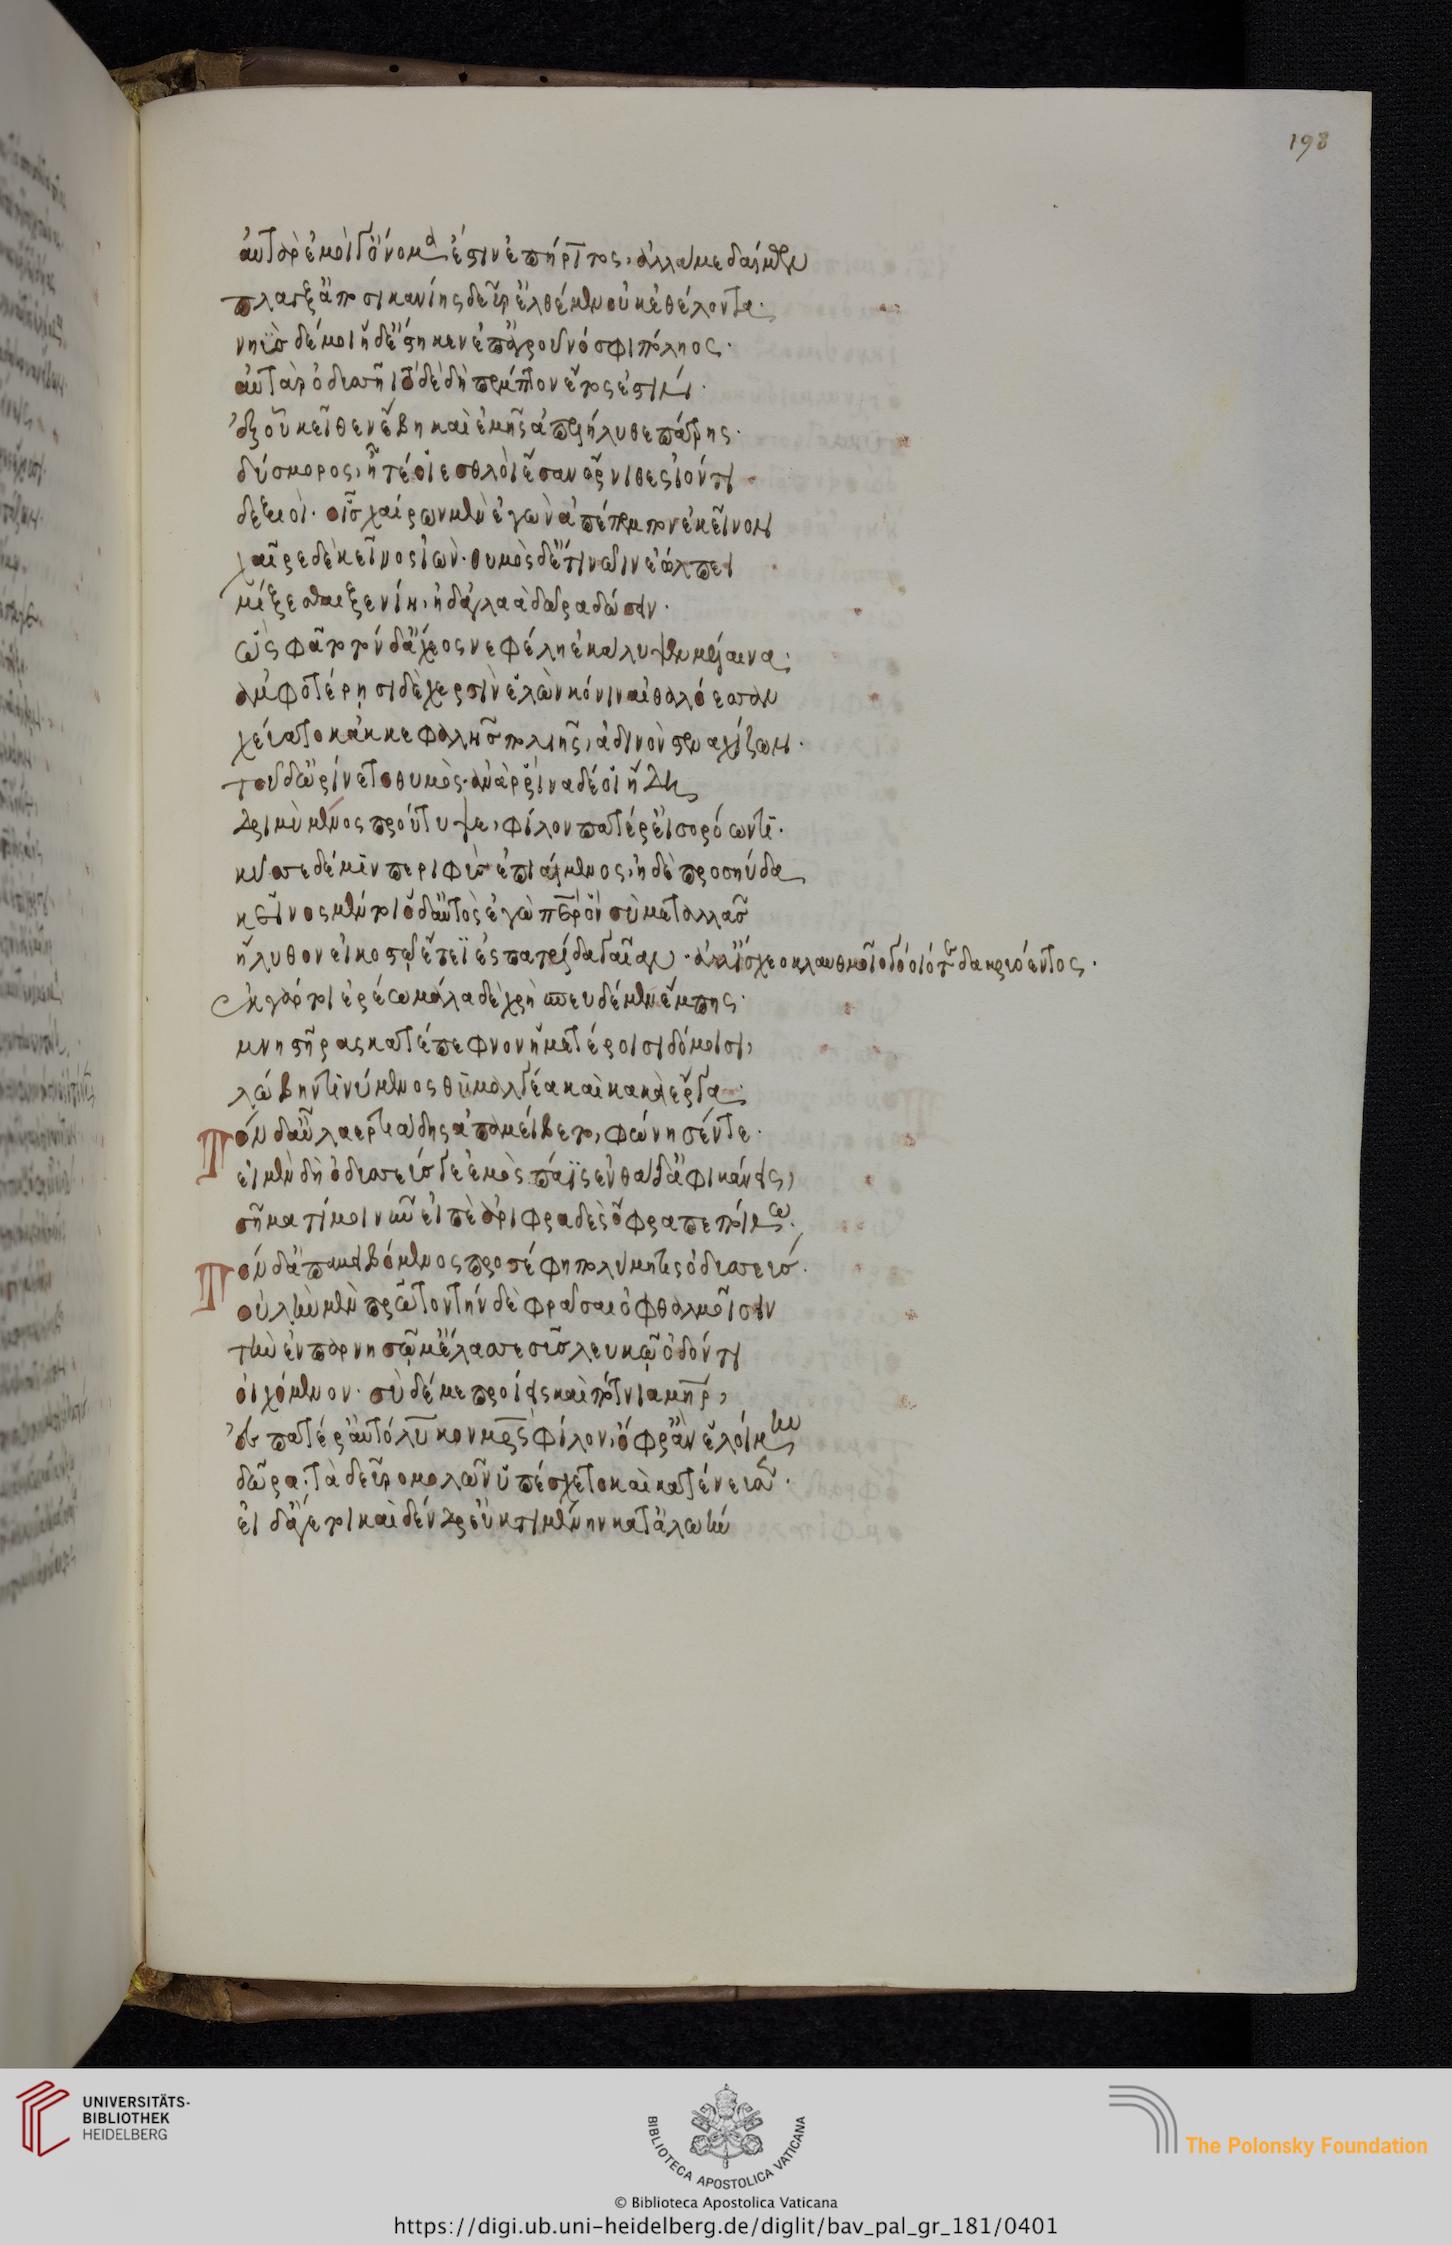 αὐτὰρ ἐμοὶ γ' ὄνομα ἐστὶν ἐπήριτος, ἀλλά με δαίμων
πλάγξ' ἀπο σικανίης δεῦρ' ἐλθέμεν οὐκ ἐθέλοντα·
νηῦς δέ μοι ἥδ' ἕστηκεν ἐπ' ἀγροῦ νόσφι πόληος·
αὐτὰρ ὀδυσσῆι τόδε δὴ πέμπτον ἔτος ἐστίν·
ἐξ οὗ κεῖθεν ἔβη καὶ ἐμῆς ἀπελήλυθε πάτρης·
δύσμορος, ἦ τέ οἱ ἐσθλοὶ ἔσαν ὄρνιθες ἰόντι
δεξιοὶ· οἷς χαίρων μὲν ἐγὼν ἀπέπεμπον ἐκεῖνον
χαῖρε δὲ κεῖνος ἰὼν· θυμὸς δ' ἔτι νῶιν ἐώλπει
μίξεσθαι ξενίη, ἠδ' ἀγλαὰ δῶρα δώσειν·
ὣς φάτο τὸν δ' ἄχεος νεφέλη ἐκάλυψε μέλαινα·
ἀμφοτέρῃσι δὲ χερσὶν ἑλὼν κόνιν αἰθαλόεσσαν
χεύατο κὰκ κεφαλῆς πολιῆς, ἁδινὸν στεναχίζων·
τοῦ δ' ὠρίνετο θυμὸς· ἀνὰ ῥῖνα δέ οἱ ἤδη
δριμὺ μένος προύτυψε, φίλον πατέρ' εἰσορόωντι·
κύσσε δέ μιν περιφὺς ἐπιάλμενος, ἠδὲ προσηύδα
κεῖνος μέν τοι ὅδ' αὐτὸς ἐγὼ πάτερ ὃν σὺ μεταλλᾶς
ἤλυθον εἰκοστῷ ἔτεϊ ἐς πατρίδα γαῖαν· ἀλλ' ἴσχεο κλαυθμοῖο γόοιό τε δακρυόεντος·
ἐκ γάρ τοι ἐρέω μάλα δὲ χρὴ σπευδέμεν ἔμπης·
μνηστῆρας κατέπεφνον ἡμετέροισι δόμοισι,
λώβην τινύμενος θυμαλγέα καὶ κακὰ ἔργα·
Τὸν δ' αὖ λαερτιάδης ἀπαμείβετο, φώνησέν τε·
εἰ μὲν δὴ ὀδυσεύς γε ἐμὸς πάϊς ἐνθάδ' ἀφικάνεις,
σῆμα τί μοι νῦν εἰπὲ ἀριφραδὲς ὄφρα πεποίθω·
Τὸν δ' ἀπαμειβόμενος προσέφη πολύμητις ὀδυσσεύς·
οὐλὴν μὲν πρῶτον τήνδε φράσαι ὀφθαλμοῖσιν
τὴν ἐν παρνησῷ μ' ἔλασε σῦς λευκῷ ὀδόντι
οἰχόμενον· σὺ δέ με προίεις καὶ πότνια μήτηρ,
ἐς πατέρ' αὐτόλυκον μητρὸς φίλον, ὄφρ' ἂν ἑλοίμην
δῶρα· τὰ δεῦρο μολὼν ὑπέσχετο καὶ κατένευσεν·
εἰ δ' ἄγε τοι καὶ δένδρε' ἐυκτιμένην κατ' ἀλωήν
198
UNIVERSITÄTS-
BIBLIOTHEK
HEIDELBERG
BIBLIOTECA APOSTOLICA VATICANA
© Biblioteca Apostolica Vaticana
The Polonsky Foundation
https://digi.ub.uni-heidelberg.de/diglit/bav_pal_gr_181/0401